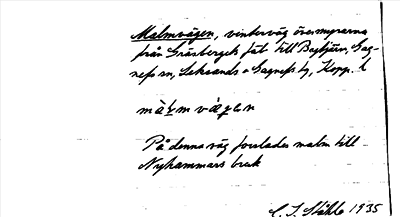 Malmvägen, vinterväg över myrarna
från Gräsbergets fäb. till Bogtjärn, Gag-
nefs sn, Leksands o Gagnefs tg, Kopp. l
målmvägen
På denna väg forslades malm till
Nyhammars bruk
C. I. Ståhle 1935